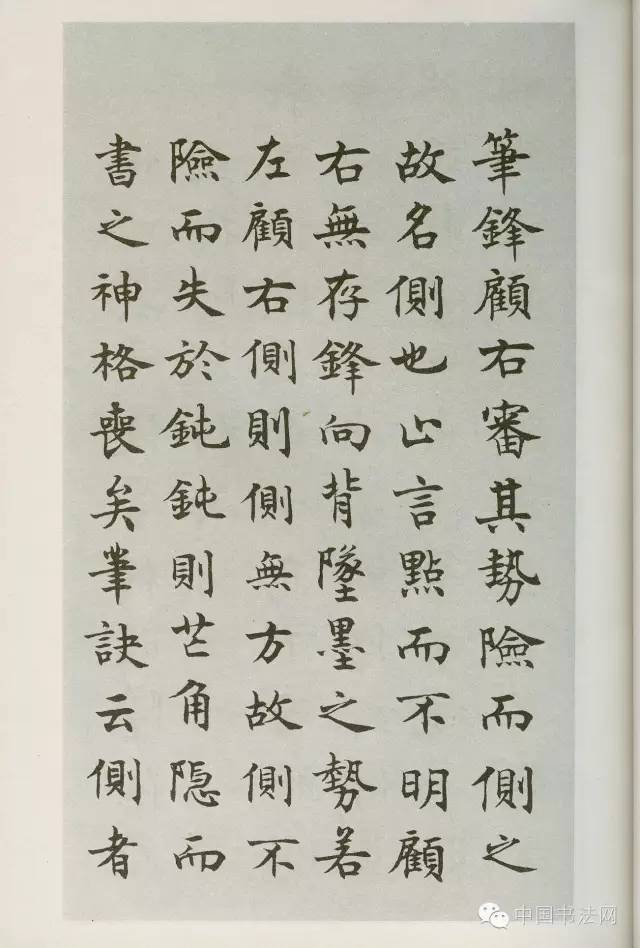 筆鋒顧右審其勢險而側之
故名側也止言點而不明顧
右無存鋒向背墜墨之勢若
左顧右側則側無方故側不
險而失於鈍鈍則芒角隱而
書之神格喪矣筆訣云側者
中国书法网